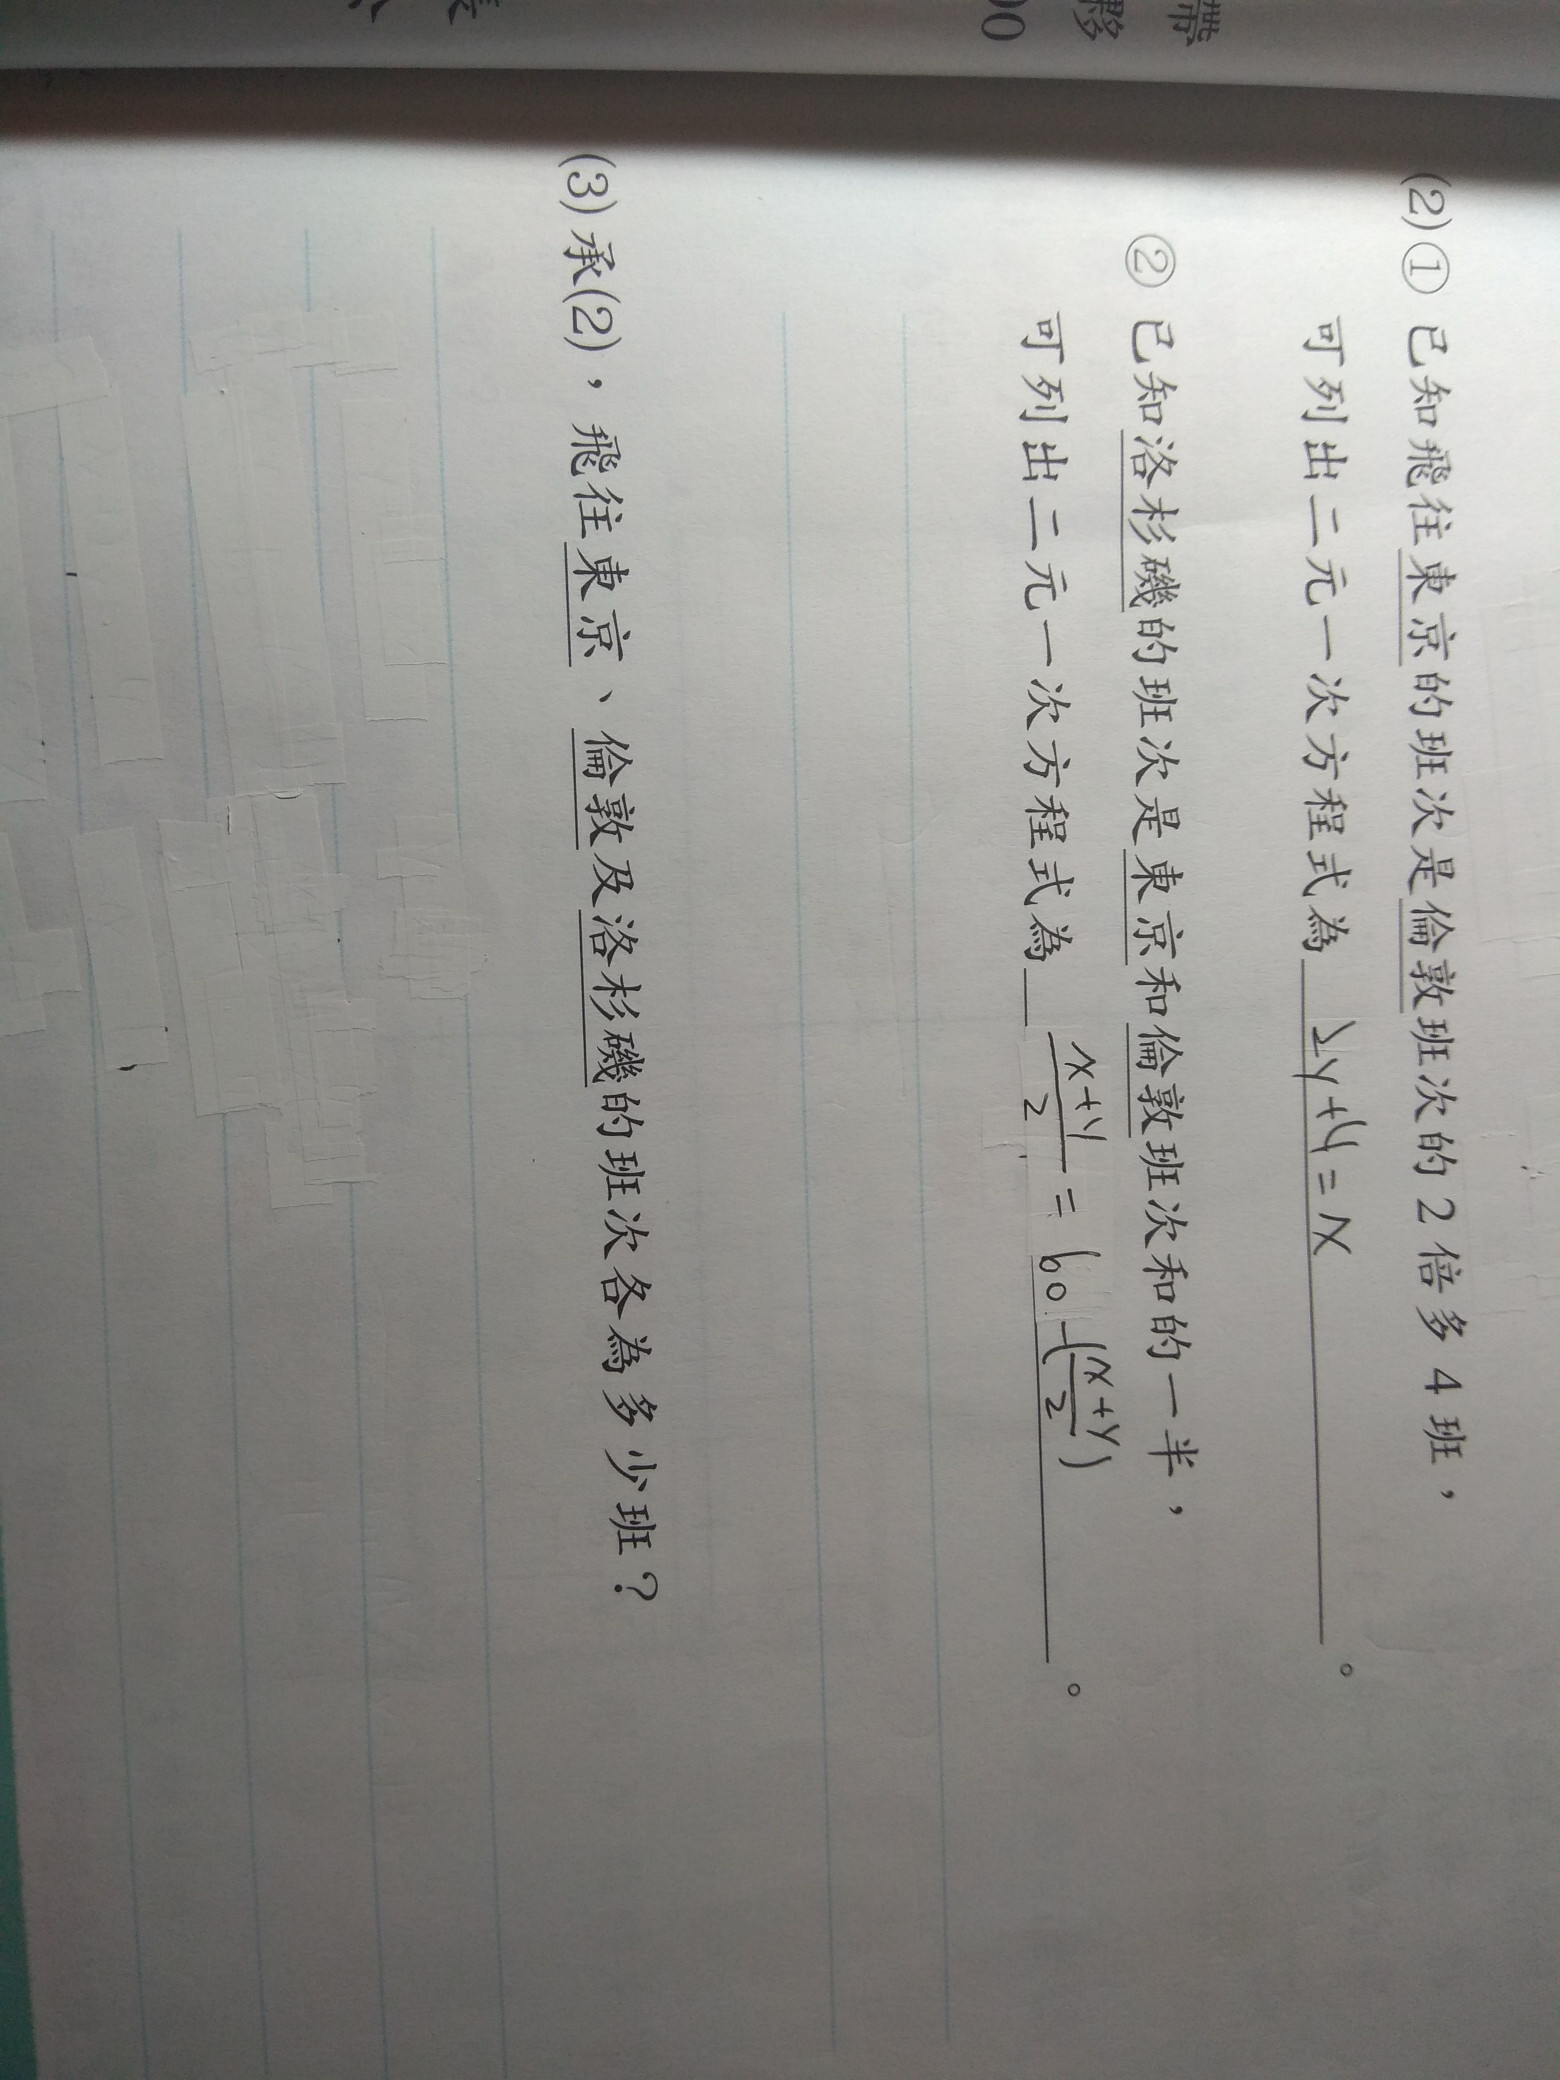 帶
夥
00
(2)① 已知飛往東京的班次是倫敦班次的2倍多4班，
可列出二元一次方程式為 2y+4=x 。
② 已知洛杉磯的班次是東京和倫敦班次和的一半，
可列出二元一次方程式為 x+y/2 = 60-(x+y/2) 。
(3)承(2)，飛往東京、倫敦及洛杉磯的班次各為多少班？